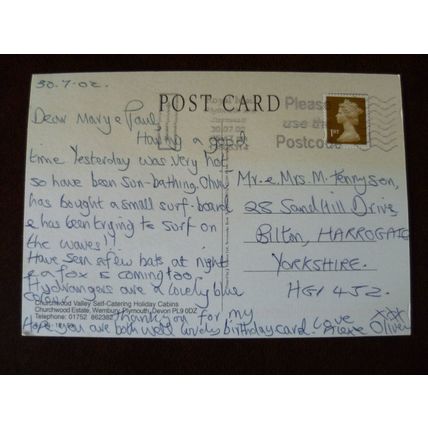 30.7.02.
POST CARD
Dear Mary e Paul,
Having a good
time Yesterday was very hot
so have been Sun-bathing. Olive
has bought a small surf-board
e has been trying to surf on
the waves!!
Have seen a few bats at night
e a fox is coming too.
Hydrangers are a lovely blue
colour.
Churchwood Valley Self-Catering Holiday Cabins
Churchwood Estate, Wembury, Plymouth, Devon PL9 0DZ
Telephone: 01752 862382
Thank you for my
lovely birthday card. Love
Hope you are both well
Oliver
xxx
Please
use the
Postcode
1st
Mr. e. Mrs. M. Tennyson,
28 Sandhill Drive,
Bilton, HARROGATE
YORKSHIRE.
HG1 4JZ.